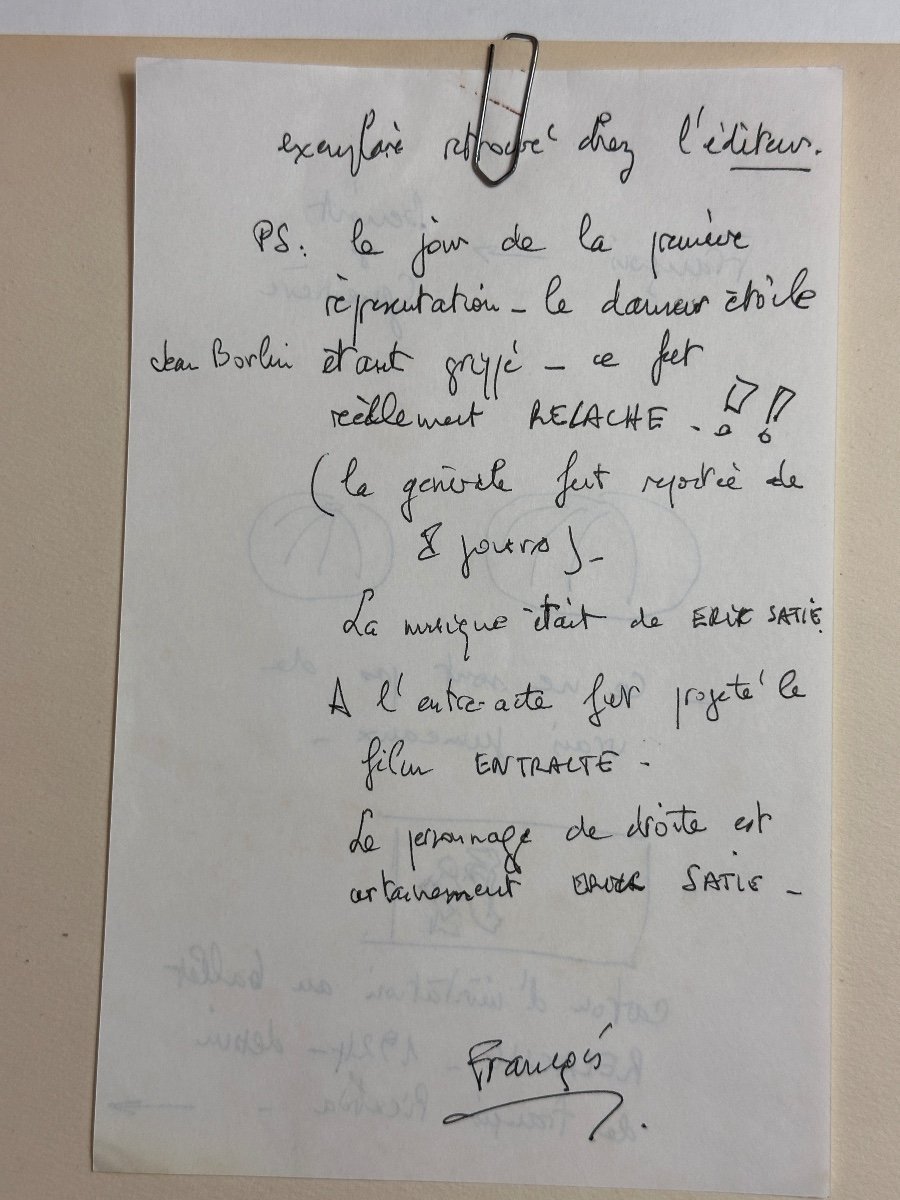 exemplaire retrouvé chez l'éditeur.
PS. le jour de la première
représentation - le danseur étoile
Jean Borlin étant grippé - ce fut
réellement RELACHE - !?!
(la générale fut reportée de
8 jours) -
La musique était de ERIK SATIE.
A l'entre-acte fut projeté le
film ENTRACTE -
Le personnage de droite est
certainement ERIK SATIE -
François
carton d'invitation au ballet
1924 - dessin
de Picabia -